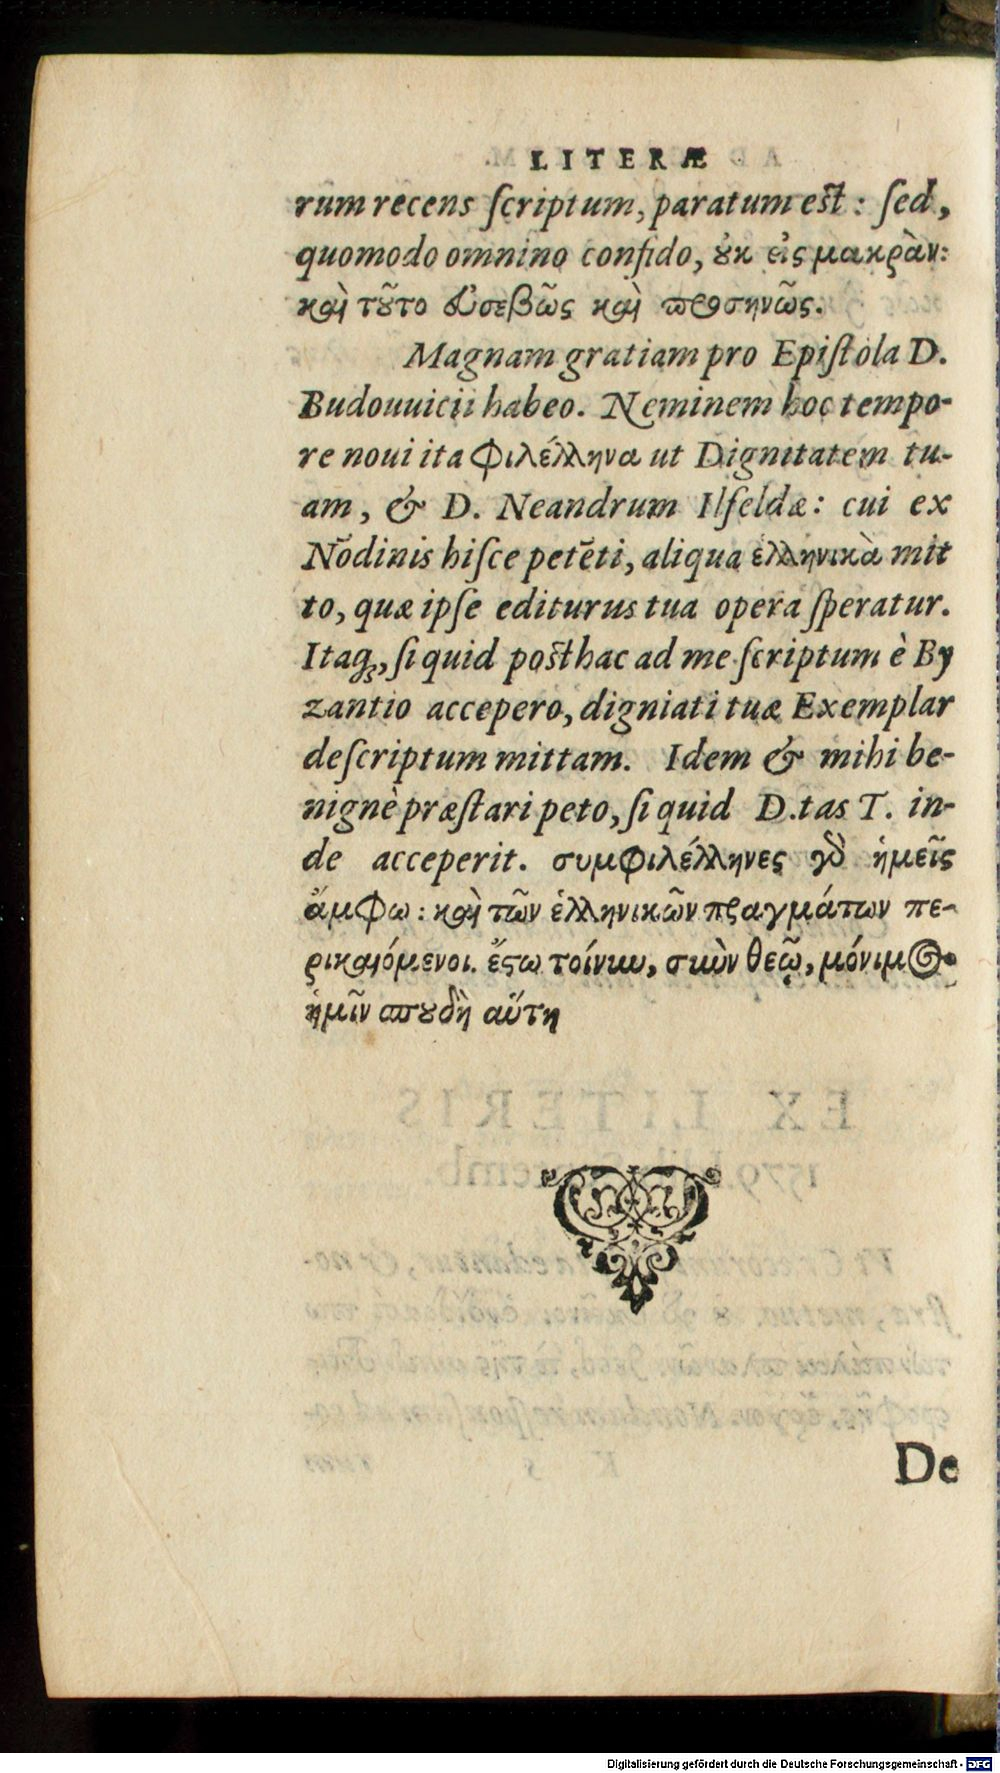 LITERÆ
rum recens ſcriptum, paratum est: ſed,
quomodo omnino confido, οὐκ εἰς μακρὰν:
καὶ τοῦτο εὐσεβῶς καὶ προσηνῶς.
Magnam gratiam pro Epiſtola D.
Budouuicii habeo. Neminem hoc tempo-
re noui ita Φιλέλληνα ut Dignitatem tu-
am, & D. Neandrum Ilfeldæ: cui ex
Nōdinis hiſce petēti, aliqua ἑλληνικὰ mit
to, quæ ipſe editurus tua opera ſperatur.
Itaq;, ſi quid posthac ad me ſcriptum è By
zantio accepero, digniati tuæ Exemplar
deſcriptum mittam. Idem & mihi be-
nignè præſtari peto, ſi quid D.tas T. in-
de acceperit. συμφιλέλληνες γὰρ ἡμεῖς
ἄμφω: καὶ τῶν ἑλληνικῶν πραγμάτων πε-
ρικαιόμενοι. ἔστω τοίνυν, σὺν θεῷ, μόνιμος
ἡμῖν σπουδὴ αὕτη
De
Digitalisierung gefördert durch die Deutsche Forschungsgemeinschaft - DFG